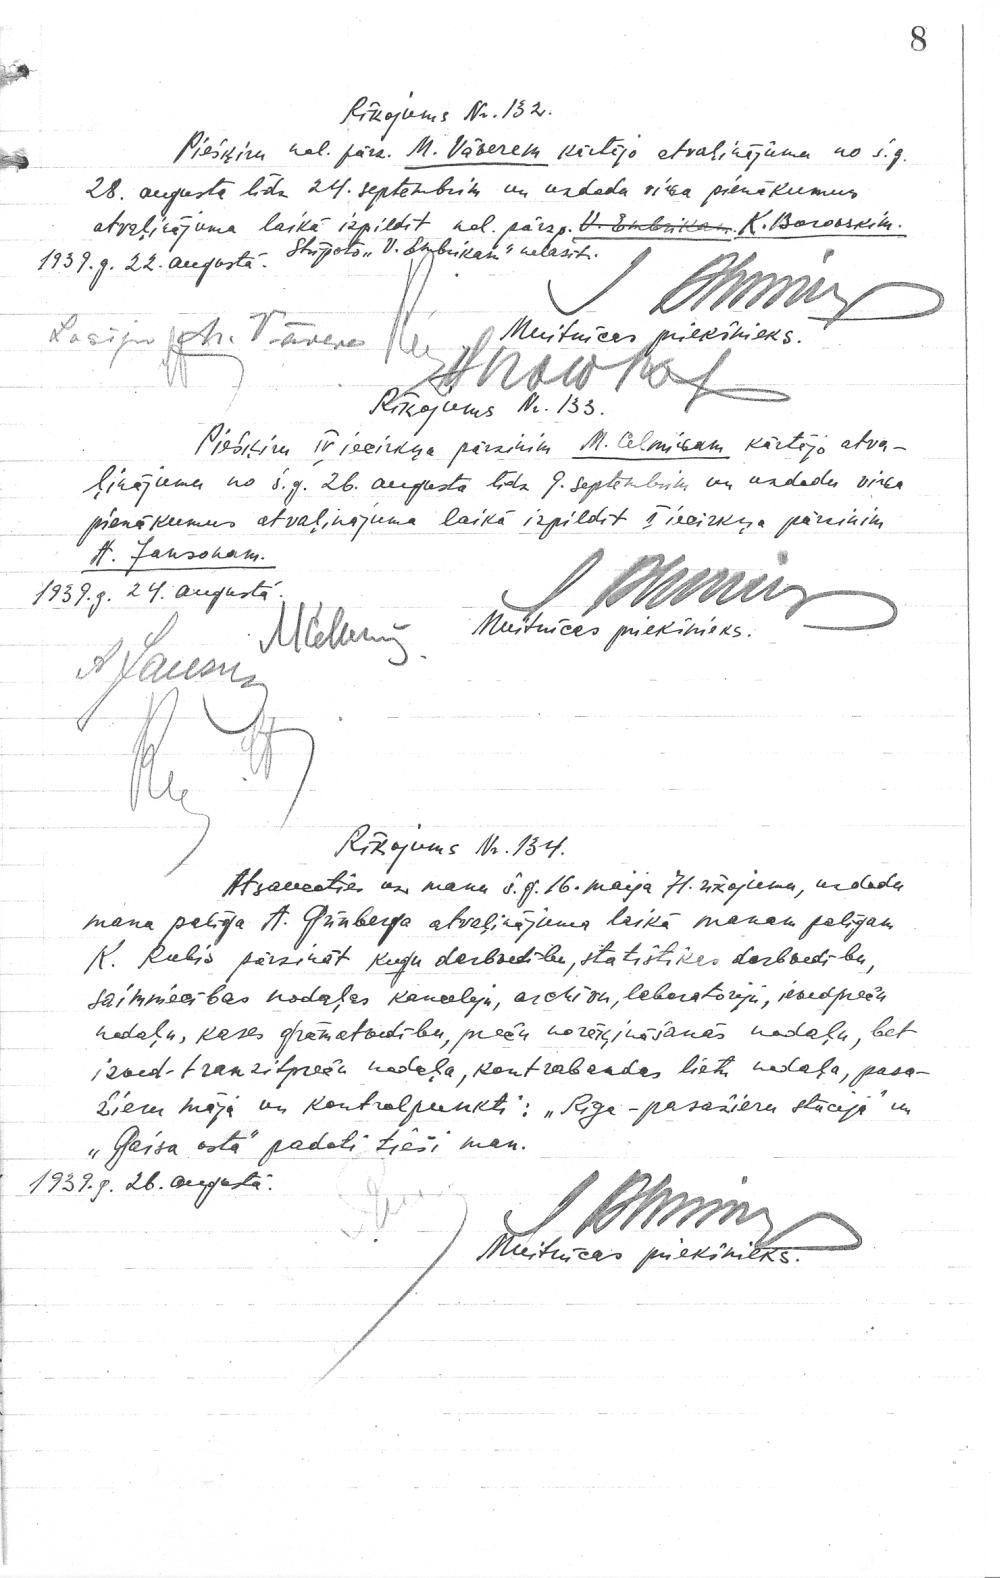 8
Rīkojums Nr. 132.
Piešķiru nod. pārz. M. Vāverem kārtējo atvaļinājumu no š.g.
28. augusta līdz 24. septembrim un uzdodu viņa pienākumus
atvaļinājuma laikā izpildīt nod. pārzp. V. Embrikam K. Borovskim.
1939. g. 22. augustā. Strīpoto „V. Embrikam“ nelasīt.
Lasīju Vāvere
Muitnīcas priekšnieks.
Rīkojums Nr. 133.
Piešķiru IV iecirkņa pārzinim M. Celmiņam kārtējo atva-
ļinājumu no š.g. 26. augusta līdz 9. septembrim un uzdodu viņa
pienākumus atvaļinājuma laikā izpildīt I iecirkņa pārzinim
A. Jansonam.
1939. g. 24. augustā.
Muitnīcas priekšnieks.
MCelmiņ
A Janson
Rīkojums Nr. 134.
Atsaucoties uz manu š.g. 16. maija 71. rīkojumu, uzdodu
mana palīga A. Grīnberga atvaļinājuma laikā manam palīgam
K. Rubis pārzināt kuģu darbvedību, statistikas darbvedību,
saimniecības nodaļas kanceleju, archīvu, laboratoriju, ievedpreču
nodaļu, kases grāmatvedību, preču norēķināšanās nodaļu, bet
izved-tranzītpreču nodaļa, kontrabandas lietu nodaļa, pasa-
žieru māja un kontrolpunkti: „Rīga-pasažieru stacijā“ un
„Gaisa ostā“ padoti tieši man.
1939. g. 26. augustā.
Muitnīcas priekšnieks.